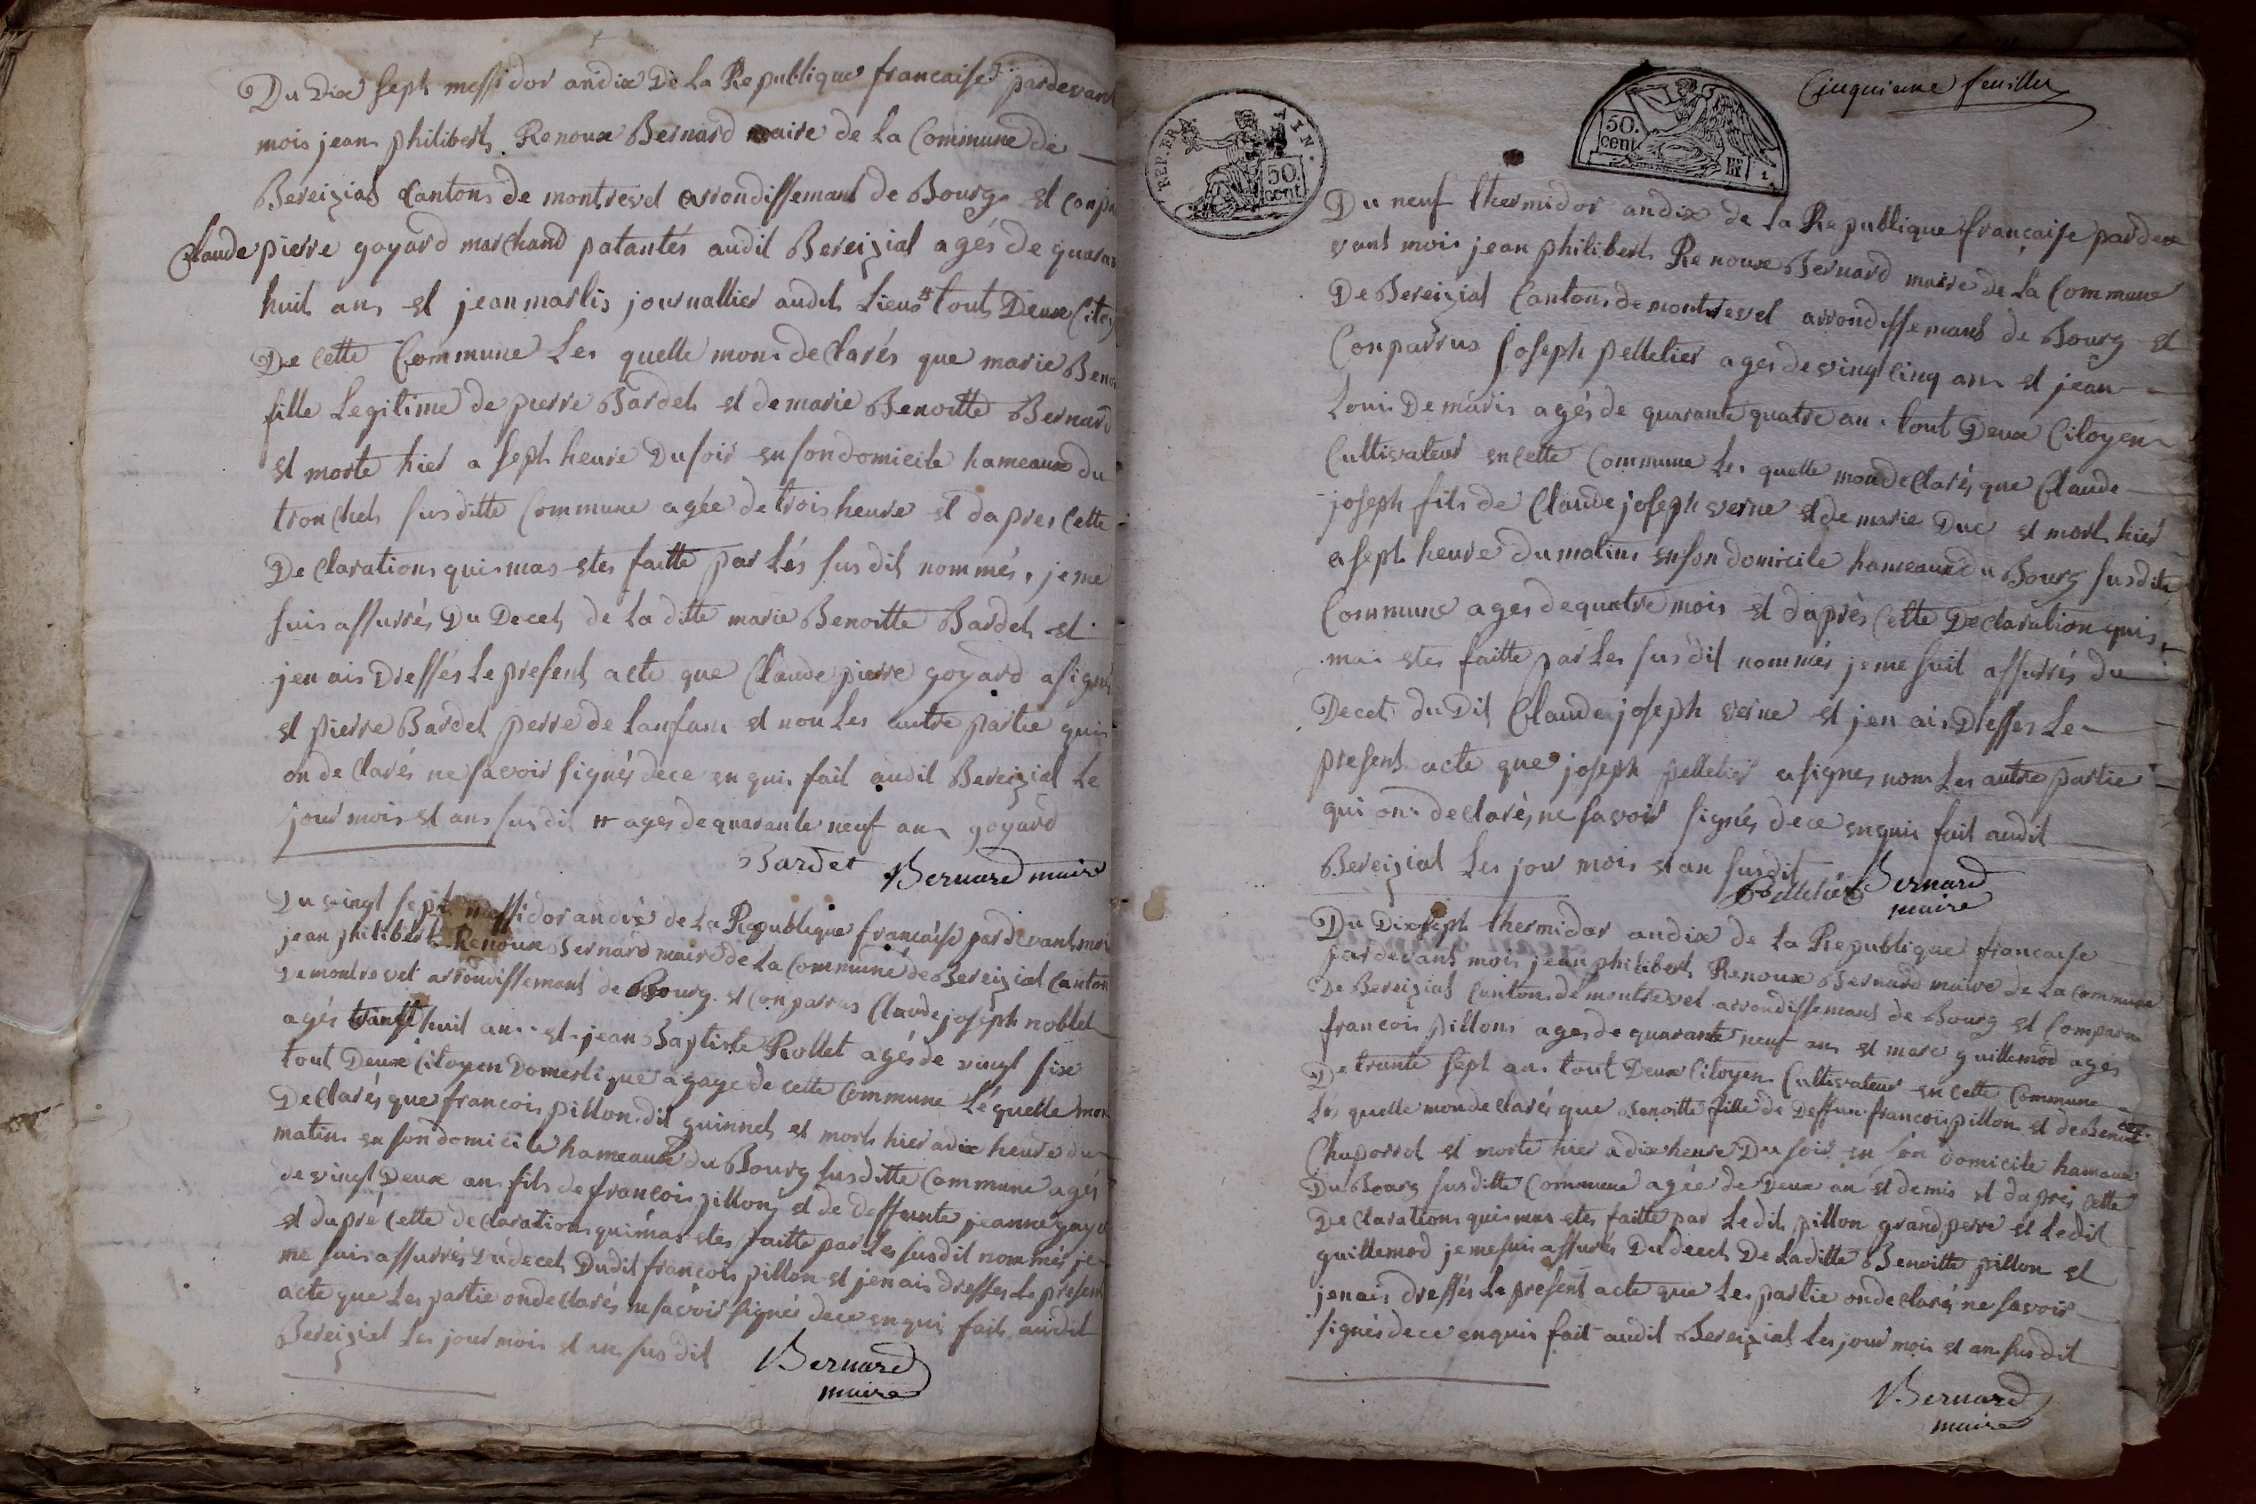 Du dix sept messidor an dix De La Republique francaise pardevant
mois jean philibert Renoux Bernard maire de La Commune de
Bereizial Canton de montrevel arrondissemant de Bourg et conpa
Claude pierre goyard marchand patantés audit Bereizial agés de quaran
huit ans et jean martis journallier audit Lieus # tout Deux Citoy
De cette Commune Les quelle mon declarés que marie Beno
fille Legitime de pierre Bardet et de marie Benoitte Bernard
et morte hier a sept heure Du soir en son domicile hameaux du
tronchet susditte Commune agée de trois heure et dapres Cette
Declaration quis mas etes faitte par Lés susdit nommés, je me
suis assurrés Du Decet de La ditte marie Benoitte Bardet et
jen ais Dressés Le present acte que Claude pierre goyard a signé
et pierre Bardet perre de lanfan et non Les autre partie quis
on declarés ne savoir signés dece en quis fait audit Bereizial Le
jour mois et ans susdit # ages de quarante neuf ans goyard
Bardet Bernard maire
Du vingt sept messidor an dix de La Republique francaise pardevant moi
jean philibert Renoux Bernard maire de La Commune de Bereizial Canton
De montrevel arrondissemant de Bourg et Conparrus Claude joseph noblet
agés huit ans et jean Baptiste Rollet agés de vingt six
tout Deux Citoyen Domestique a gage de cette Commune Léquelle mon
Declarés que francois pillon dit guinnet et mort hier a dix heure du
matin en son domicile hameaux du Bourg susditte Commune agés
de vingt Deux an fils de francois pillon et de deffunte jeanne
et dapré Cette declaration quimas etes faitte par Les susdit nommés je
me suis assurrés Du decet Dudit francois pillon et jen ais dresses Le present
acte que Les partie on declarés ne savoir signés dece enquis fait audit
Bereizial Les jour mois et an susdit Bernard
maire
Cinquieme feuillet
REP. FRA. AIN.
50 cent
50. cent. RF
Du neuf thermidor an dix de La Republique francaise parde
vant mois jean philibert Renoux Bernard maire de La Commune
De Bereizial Canton de montrevel arrondissemant de Bourg et
Conparrus joseph pelletier ages de vingt cinq ans et jean
Loui Demaris agés de quarante quatre an tout Deux Citoyen
Cultivateur en cette Commune Les quelle mon declarés que Claude
joseph fils de Claude joseph verne et de marie Duc et mort hier
a sept heure du matin en son domicile hameaux du Bourg susditte
Commune ages de quatre mois et daprès Cette Declaration quis
mas etes faitte par Les susdit nommés je me suit assurrés du
Decet du Dit Claude joseph verne et jen ais Dresses Le
present acte que joseph pelletier a signes non Les autre partie
qui on declarés ne savoir signés dece enquis fait audit
Bereizial Les jour mois et an susdit
Pelletier Bernard
maire
Du Dix sept thermidor an dix de La Republique francaise
pardevant mois jean philibert Renoux Bernard maire de La Commune
De Bereizial Canton de montrevel arrondissemant de Bourg et Comparu
francois pillon ages de quarante neuf ans et marc guillemod agés
De trante sept an tout Deux Citoyen Cultivateur en cette Commune
Lés quelle mon declarés que Benoitte fille de Deffun francois pillon et de
et morte hier a dix heure Du soir en son domicile hamaux
Du Bourg susditte Commune agée de Deux an et demis et dapres Cette
Declaration quis mas etes faitte par Le dit pillon grand perre et Ledit
guillemod je me suis assurés Du decet De La ditte Benoitte pillon et
jen ais dressés Le present acte que Les partie on declarés ne savoir
signés dece enquis fait audit Bereizial Les jour mois et an susdit
Bernard
maire